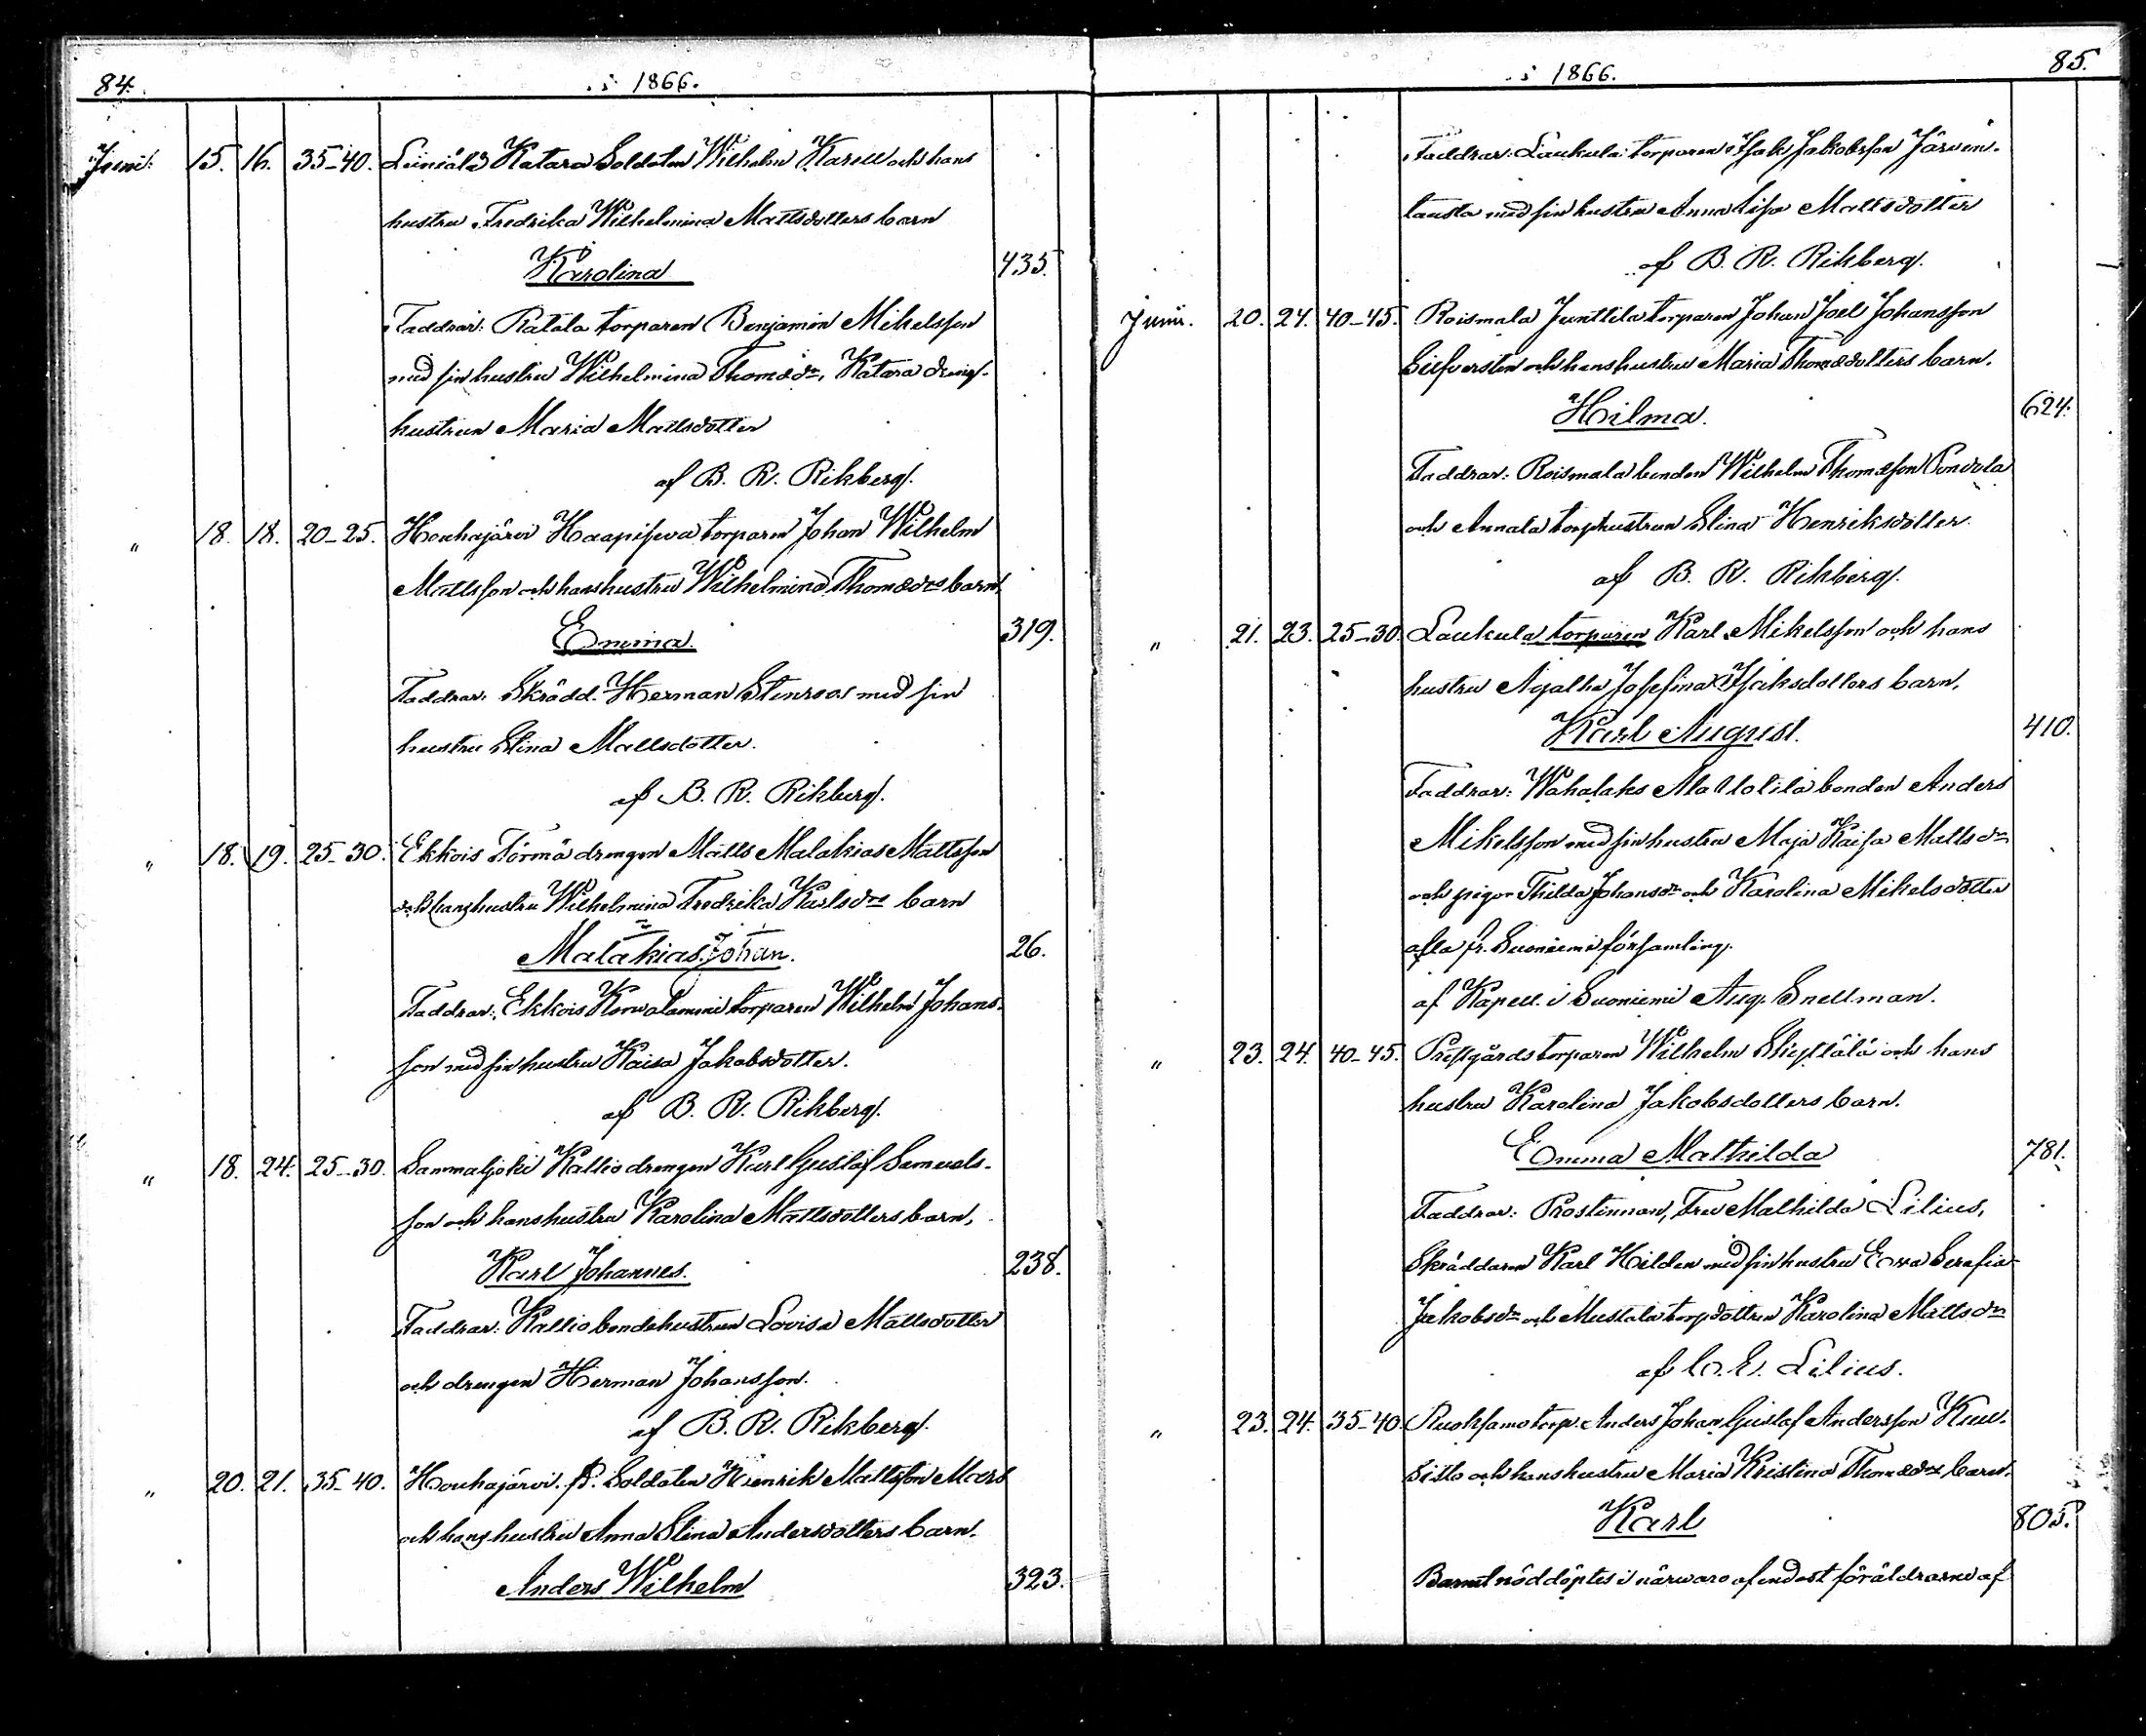 84.
i 1866.
Juni. 15. 16. 35-40. Leiniälä Katara Soldaten Wilhelm Karell och hans
hustru Fredrika Wilhelmina Mattsdotters barn
Karolina 435.
Faddrar: Ratala torparen Benjamin Mikelsson
med sin hustru Wilhelmina Thomædr, Katara drengs-
hustrun Maria Mattsdotter
af B. R. Rikberg.
" 18. 18. 20-25. Houhajärvi Haapisewa torparen Johan Wilhelm
Mattsson och hans hustru Wilhelmina Thomædrs barn,
Emma. 319.
Faddrar: Skrädd. Herman Stenroos med sin
hustru Stina Mattsdotter.
af B. R. Rikberg.
" 18. 19. 25-30. Ekkois Törmä drengen Matts Malakias Mattsson
och hans hustru Wilhelmina Fredrika Karlsdrs barn
Malakias Johan. 26.
Faddrar: Ekkois Korwalammi torparen Wilhelm Johans-
son med sin hustru Kaisa Jakobsdotter.
af B. R. Rikberg.
" 18. 24. 25-30. Sammaljoki Kallio drengen Karl Gustaf Samuels-
son och hans hustru Karolina Mattsdotters barn,
Karl Johannes. 238.
Faddrar: Kallio bondehustrun Lovisa Mattsdotter
och drengen Herman Johansson.
af B. R. Rikberg.
" 20. 21. 35-40. Houhajärvi. f.d. Soldaten Henrik Mattsson Mars
och hans hustru Anna Stina Andersdotters barn.
Anders Wilhelm 323.
i 1866.
85.
Faddrar: Laukula torparen Isak Jakobsson Järven-
tausta med sin hustru Anna Lisa Mattsdotter
af B. R. Rikberg.
Juni. 20. 24. 40-45. Roismala Junttila torparen Johan Joel Johansson
Silfversten och hans hustru Maria Thomædotters barn.
Hilma. 624.
Faddrar: Roismala bonden Wilhelm Thomæson Pondola
och Annala torphustrun Stina Henriksdotter.
af B. R. Rikberg.
" 21. 23. 25-30. Laukula torparen Karl Mikelsson och hans
hustru Agatha Josefina Isaksdotters barn,
Karl August. 410.
Faddrar: Wahalaks Ala Uotila bonden Anders
Mikelsson med sin hustru Maja Kaisa Mattsdr
och pigor Thilda Johansdr och Karolina Mikelsdotter
alla fr. Suoniemi församling.
af Kapell. i Suoniemi Aug. Snellman.
" 23. 24. 40-45. Prestgårds torparen Wilhelm Skyttälä och hans
hustru Karolina Jakobsdotters barn.
Emma Mathilda 781.
Faddrar: Prostinnan, Fru Mathilda Lilius,
Skräddaren Karl Hilden med sin hustru Ewa Serafia
Jakobsdr och Mustala torpdottren Karolina Mattsdr
af C. E. Lilius.
" 23. 24. 35-40. Ruohsamo torp. Anders Johan Gustaf Andersson Kuu-
sisto och hans hustru Maria Kristina Thomædrs barn.
Karl 805.
Barnet nöddöptes i närwaro af endast föräldrarne af